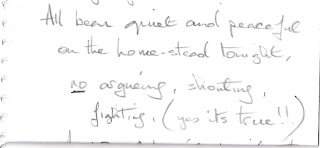 All been quiet and peaceful
on the home-stead tonight,
no argueing, shouting,
fighting, (yes its true!!)